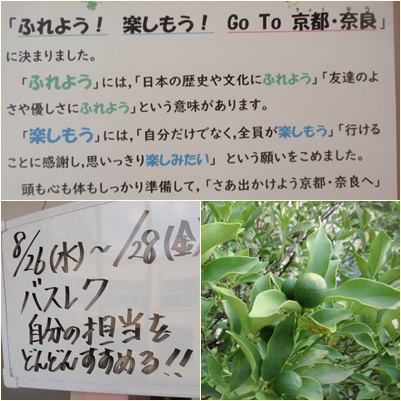 「ふれよう！ 楽しもう！ Go To 京都・奈良」
に決まりました。
「ふれよう」には，「日本の歴史や文化にふれよう」「友達のよ
さや優しさにふれよう」という意味があります。
「楽しもう」には，「自分だけでなく，全員が楽しもう」「行ける
ことに感謝し，思いっきり楽しみたい」 という願いをこめました。
頭も心も体もしっかり準備して，「さあ出かけよう京都・奈良へ」
8/26(水)～/28(金)
バスレク
自分の担当を
どんどんすすめる!!